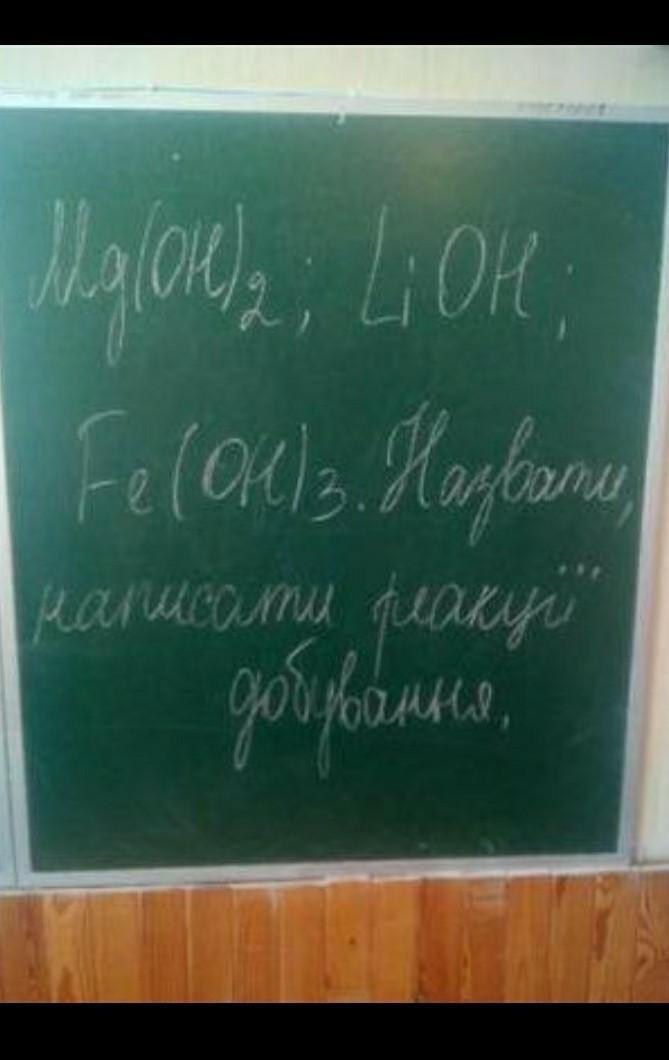 Mg(OH)₂; LiOH;
Fe(OH)₃. Назвати,
написати реакції
добування.